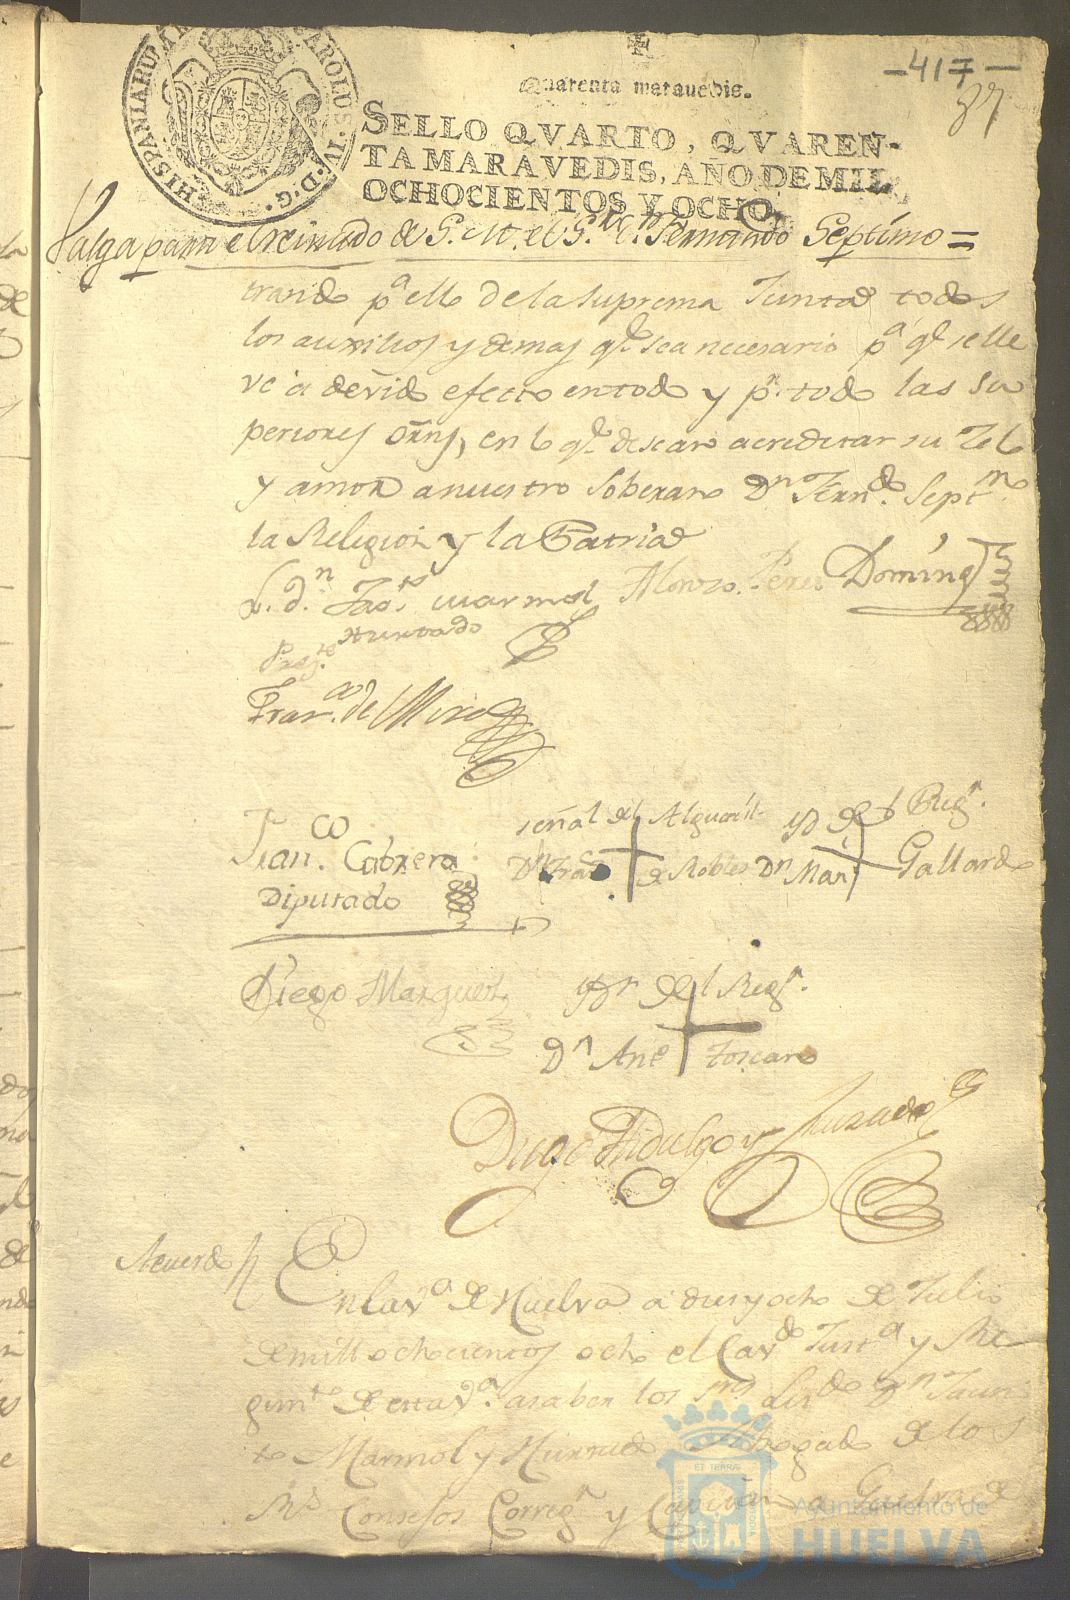 HISPANIARUM
CAROLUS · IV · D · G ·
-417-
87
Quarenta maravedis.
SELLO QVARTO, QVAREN-
TA MARAVEDIS, AÑO DE MIL
OCHOCIENTOS Y OCHO.
Valga para el reinado de S. M. el Sr. Dn. Fernando Septimo =
trando pa. ello de la suprema Junta todos
los auxilios y demas qe. sea necesario pa. qe. se lle
ve a devido efecto en todo y pr. todo las su
periores orns, en lo qe. desearon acreditar su Zelo
y amor a nuestro Soberano Dn Fernd. Septmo
la Religion y la Patria
L. dn. Jacto. Marmol Alonso Perez Doming
Hurtado
Preste.
Franco. de Mirez
señal del Alguacil yd. del Regr.
Franco. Cabrera Dn. Franco de Robles Dn Manl Gallardo
Diputado
Diego Marquez yd. del Regr.
Dn Anto Toscano
Diego Hidalgo y
Acuerdo En la va. de Huelva a diez y ocho de Julio
de mill ochocientos ocho el Cavdo Justa y Re
gimto de esta Va. a saber los srs Licdo Dn Jacin
to Marmol y Hurtado Abogado de los
Rs Consejos Corregr y Capitan a Guerra de
ET TERRAE
Ayuntamiento de
HUELVA